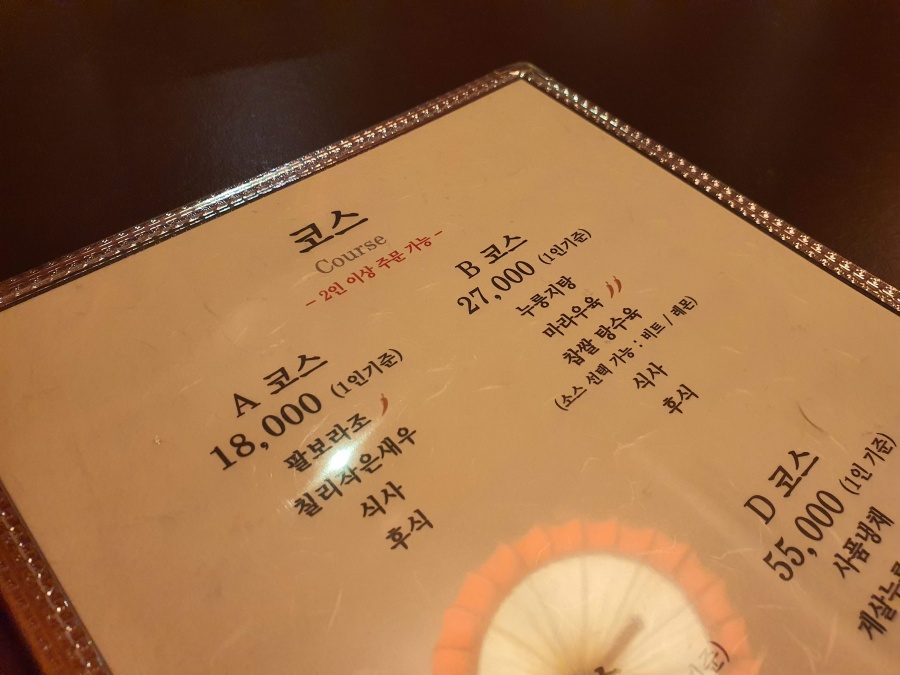 코스
Course
- 2인 이상 주문 가능 -
A 코스
18,000 (1인기준)
팔보라조
칠리작은새우
식사
후식
B 코스
27,000 (1인기준)
누룽지탕
마라우육
찹쌀 탕수육
(소스 선택 가능 : 비트 / 레몬)
식사
후식
D 코스
55,000 (1인 기준)
사품냉채
게살누룽